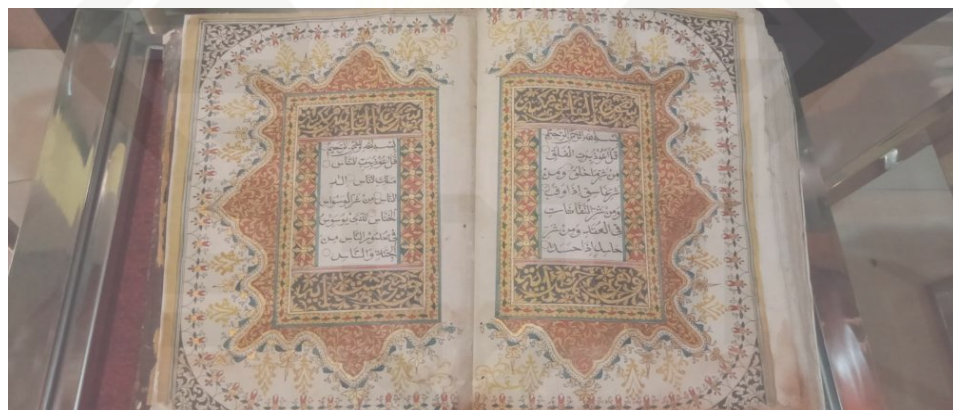 سورة الفلق مكية
بسم الله الرحمن الرحيم
قل أعوذ برب الفلق
من شر ما خلق ومن
شر غاسق إذا وقب
ومن شر النفاثات
في العقد ومن شر
حاسد إذا حسد
سورة الناس مكية
بسم الله الرحمن الرحيم
قل أعوذ برب الناس
ملك الناس إله
الناس من شر الوسواس
الخناس الذي يوسوس
في صدور الناس من
الجنة والناس